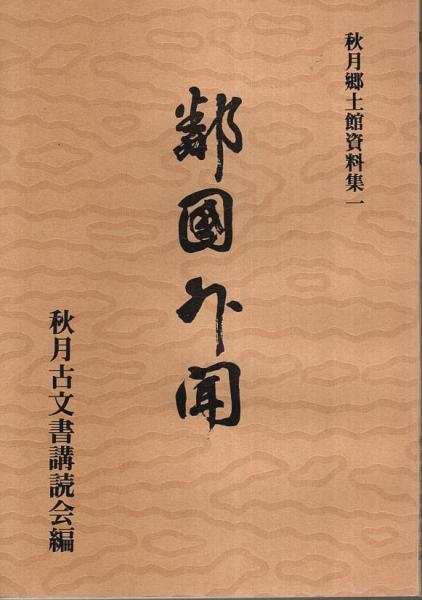 秋月郷土館資料集一
鄰國外聞
秋月古文書講読会編